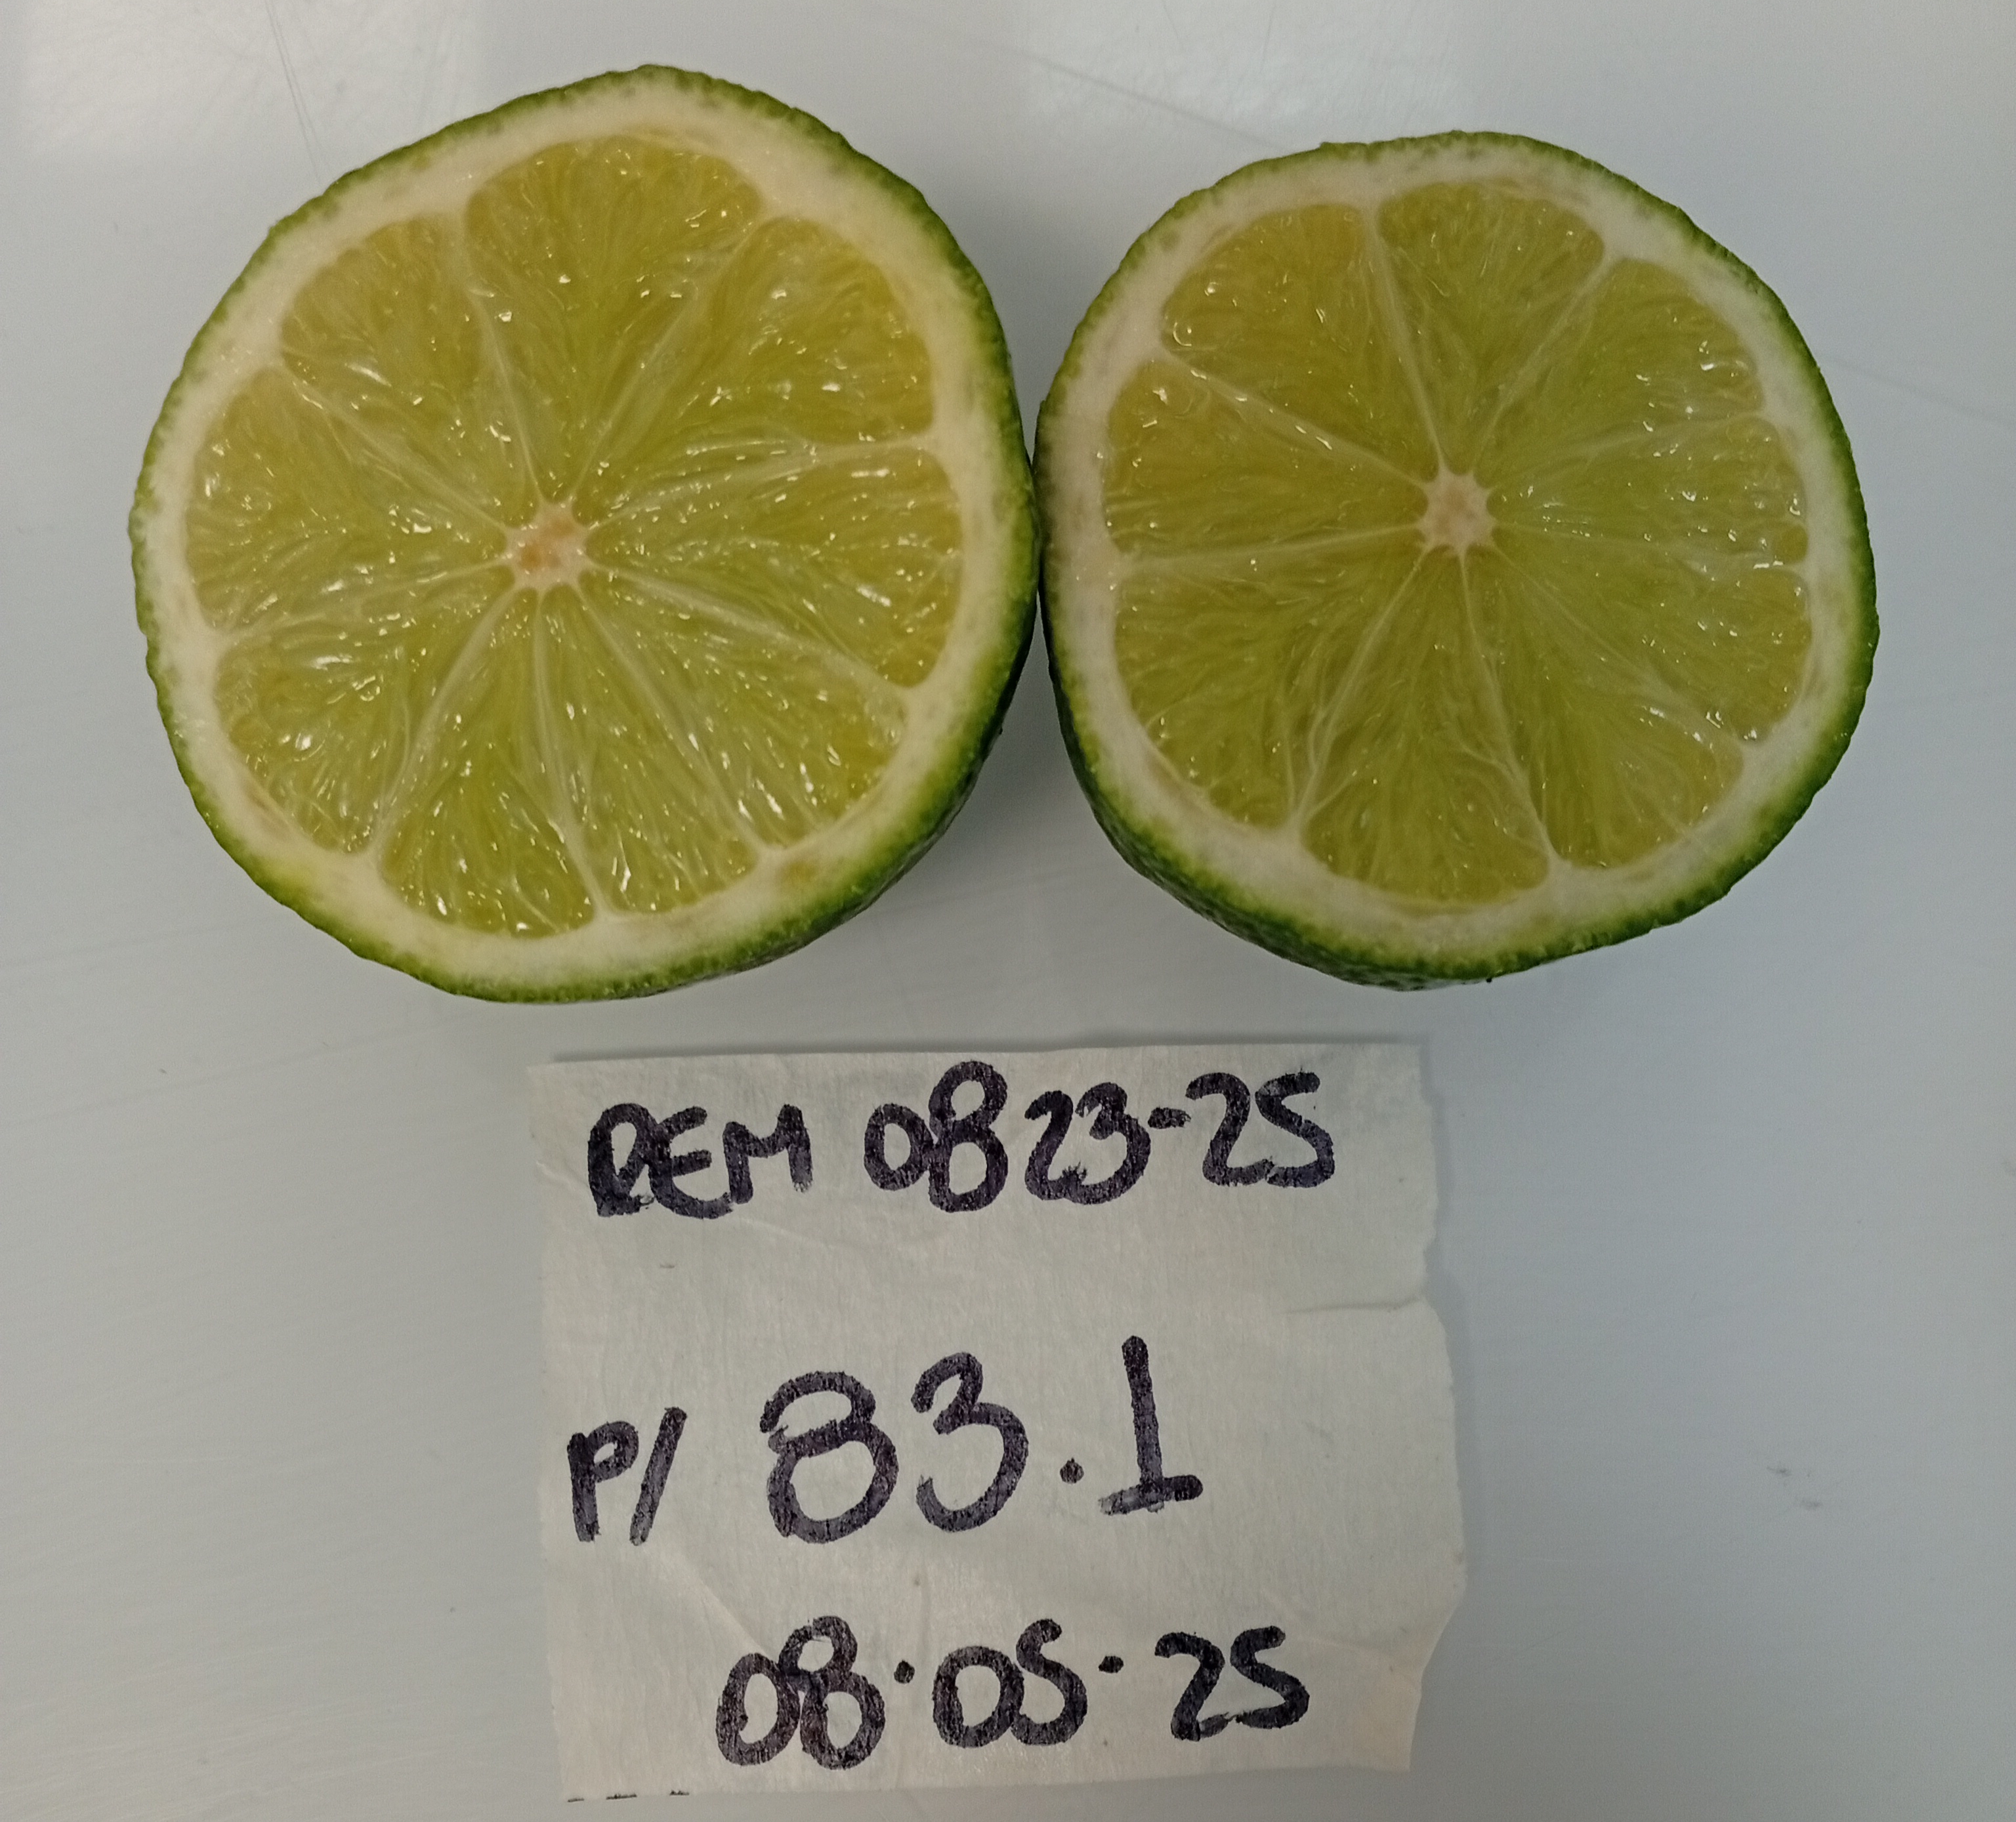 REM 0823-25
P/ 83.1
08.05.25